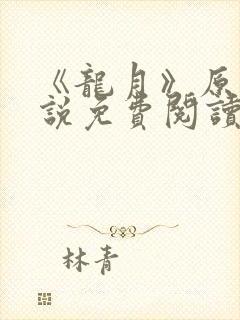 《龍月》原
說免費閱讀
林青